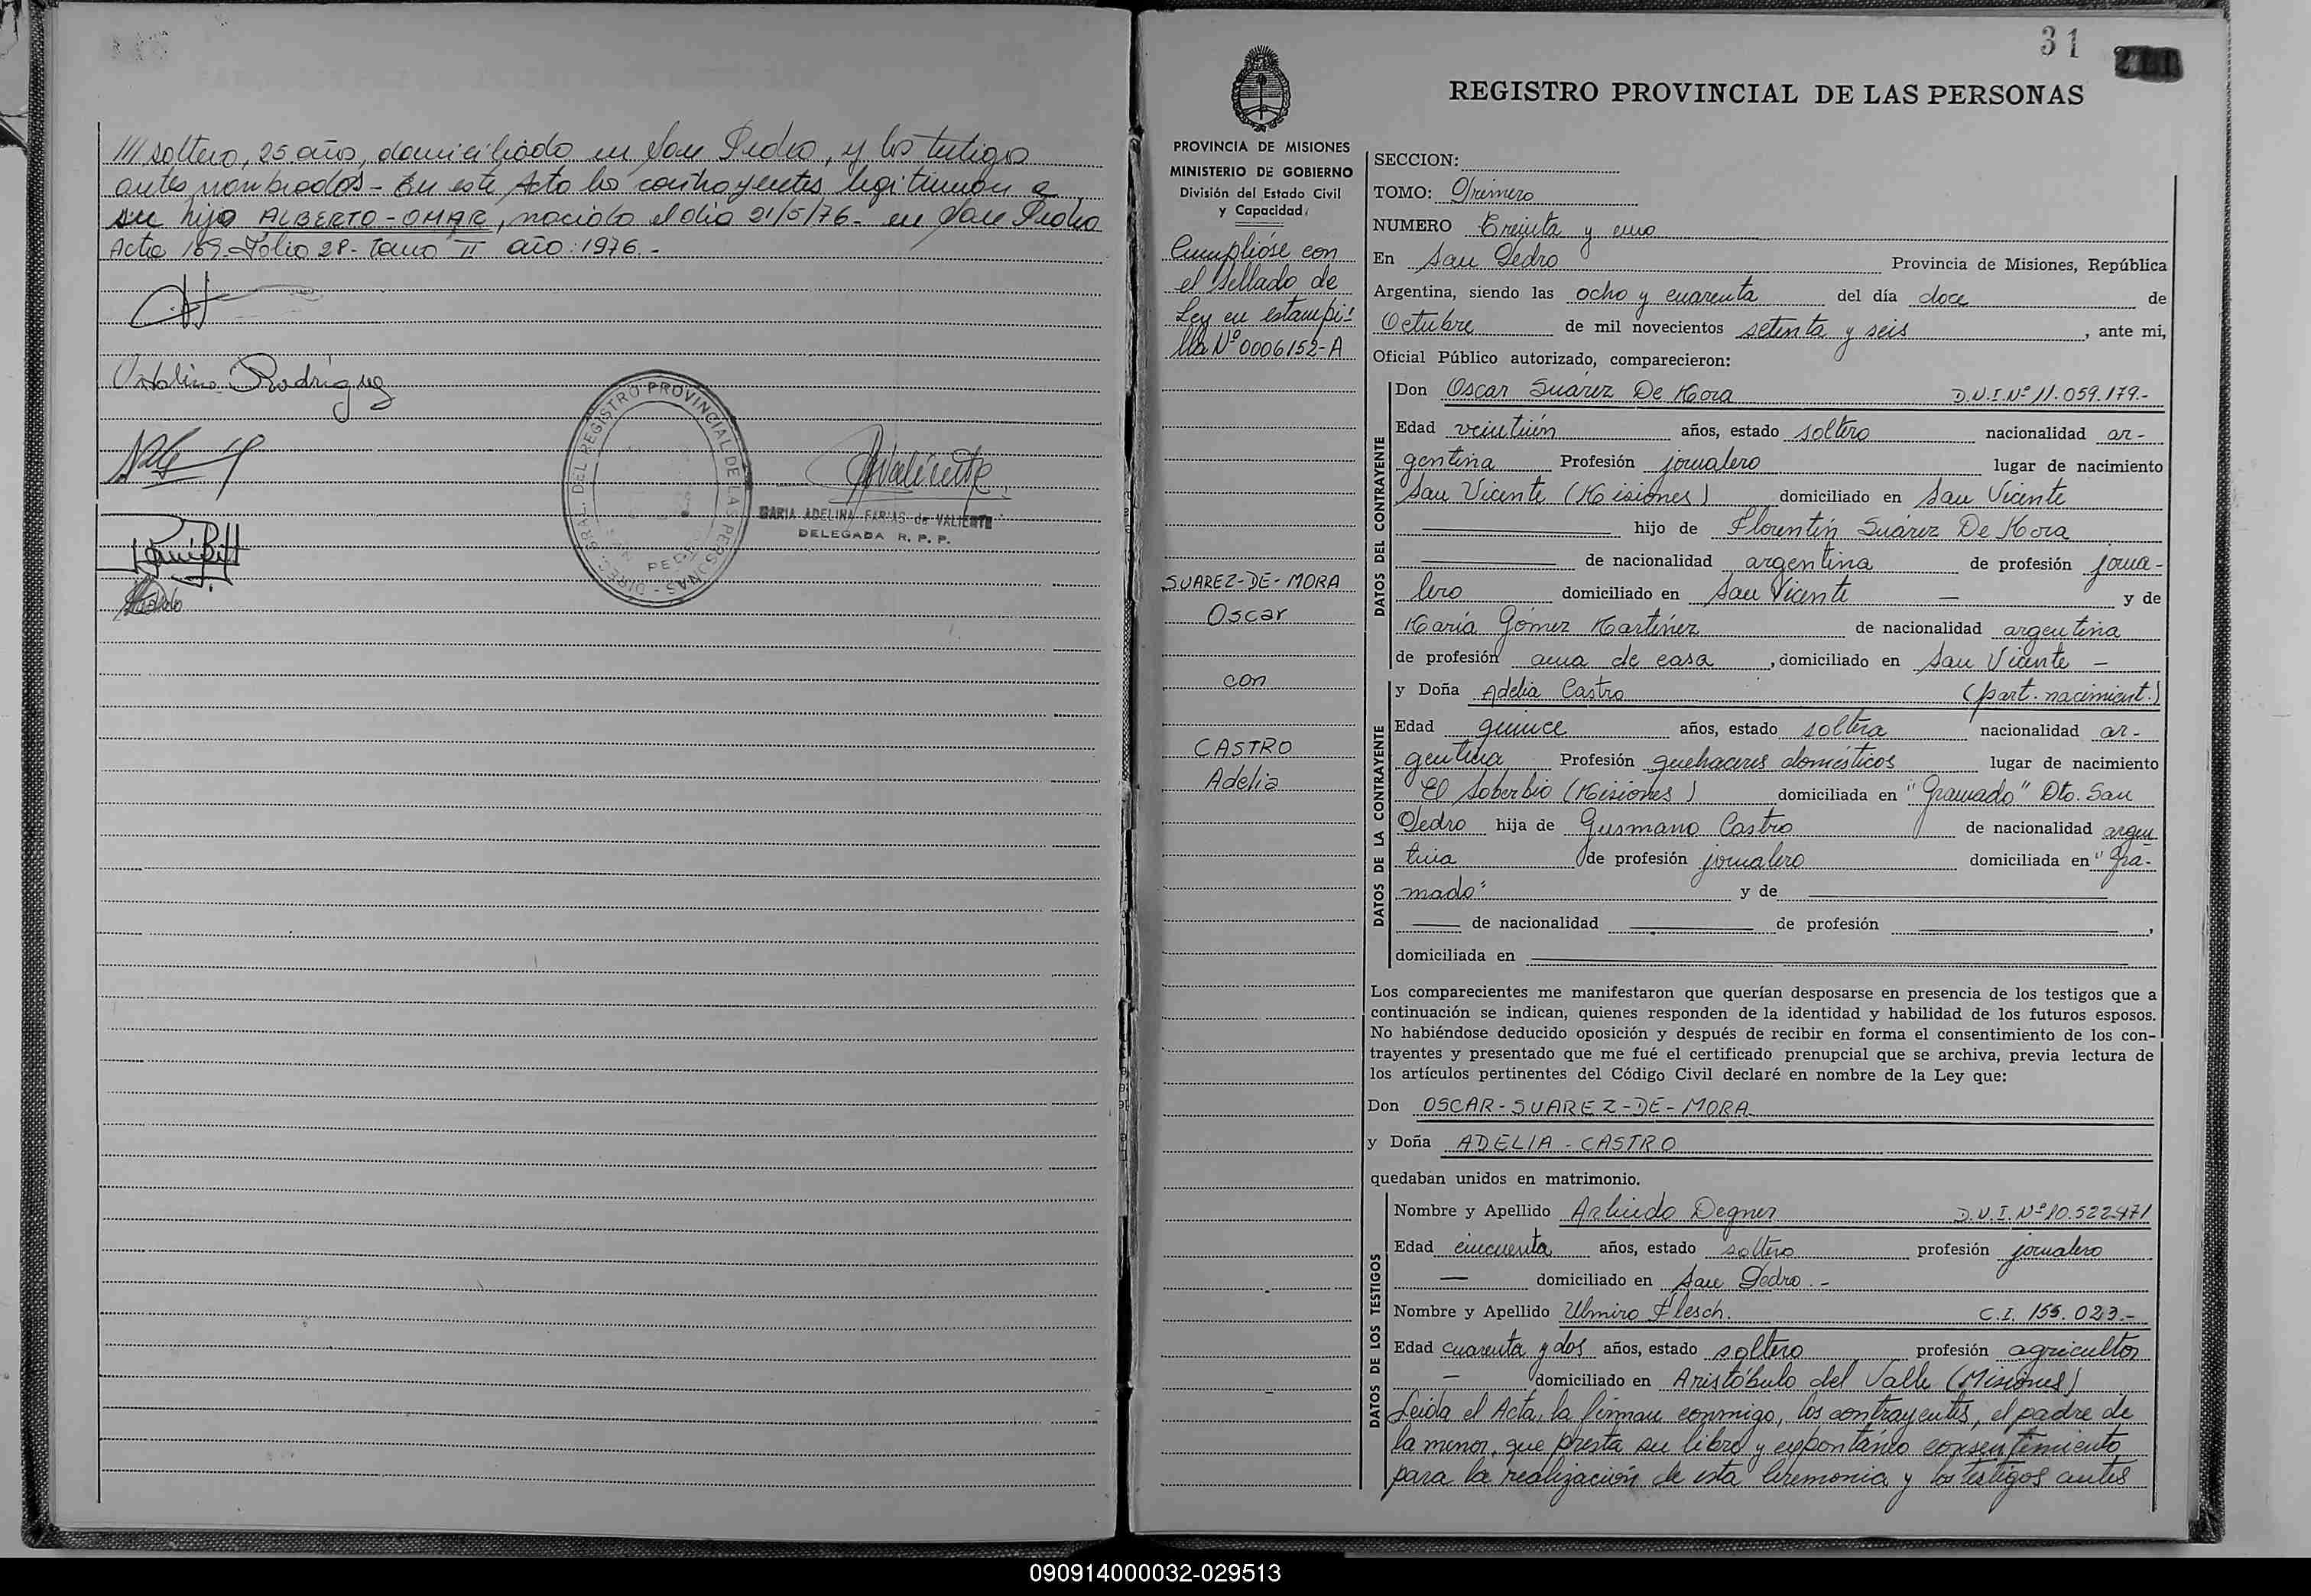 /// soltero, 25 años, domiciliado en San Pedro, y los testigos
antes nombrados - En este Acto los contrayentes legitiman a
su hijo ALBERTO - OMAR, nacido el día 21/5/76 - en San Pedro
Acta 169 - Folio 28 - tomo II año: 1976. -
Rodríguez
DIREC. GRAL. DEL REGISTRO PROVINCIAL DE LAS PERSONAS
PEDRO
Valiente
MARIA ADELINA FARIAS de VALIENTE
DELEGADA R. P. P.
31
REGISTRO PROVINCIAL DE LAS PERSONAS
PROVINCIA DE MISIONES
MINISTERIO DE GOBIERNO
División del Estado Civil
y Capacidad
Cumplióse con
el sellado de
Ley en estampi-
lla Nº 0006152-A
SUAREZ-DE-MORA
Oscar
con
CASTRO
Adelia
SECCION:
TOMO: Primero
NUMERO Treinta y uno
En San Pedro Provincia de Misiones, República
Argentina, siendo las ocho y cuarenta del día doce de
Octubre de mil novecientos setenta y seis, ante mi,
Oficial Público autorizado, comparecieron:
DATOS DEL CONTRAYENTE
Don Oscar Suárez De Mora D.N.I.Nº 11.059.179.-
Edad veintiún años, estado soltero nacionalidad ar-
gentina Profesión jornalero lugar de nacimiento
San Vicente (Misiones) domiciliado en San Vicente
hijo de Florentín Suárez De Mora
de nacionalidad argentina de profesión jorna-
lero domiciliado en San Vicente — y de
María Gómez Martínez de nacionalidad argentina
de profesión ama de casa, domiciliado en San Vicente —
DATOS DE LA CONTRAYENTE
y Doña Adelia Castro (part. nacimient.)
Edad quince años, estado soltera nacionalidad ar-
gentina Profesión quehaceres domésticos lugar de nacimiento
El Soberbio (Misiones) domiciliada en "Gramado" Dto. San
Pedro hija de Gusmano Castro de nacionalidad argen
tina de profesión jornalero domiciliada en "Gra-
mado" y de
de nacionalidad de profesión ,
domiciliada en
Los comparecientes me manifestaron que querían desposarse en presencia de los testigos que a
continuación se indican, quienes responden de la identidad y habilidad de los futuros esposos.
No habiéndose deducido oposición y después de recibir en forma el consentimiento de los con-
trayentes y presentado que me fué el certificado prenupcial que se archiva, previa lectura de
los artículos pertinentes del Código Civil declaré en nombre de la Ley que:
Don OSCAR - SUAREZ - DE - MORA
y Doña ADELIA - CASTRO
quedaban unidos en matrimonio.
DATOS DE LOS TESTIGOS
Nombre y Apellido Arlindo Degner D.N.I.Nº 10.522.471
Edad cincuenta años, estado soltero profesión jornalero
— domiciliado en San Pedro. -
Nombre y Apellido Ulmiro Flesch. C.I. 155.023.-
Edad cuarenta y dos años, estado soltero profesión agricultor
— domiciliado en Aristóbulo del Valle (Misiones)
Leída el Acta, la firman conmigo, los contrayentes, el padre de
la menor, que presta su libre y espontáneo consentimiento
para la realización de esta Ceremonia y los testigos antes
090914000032-029513